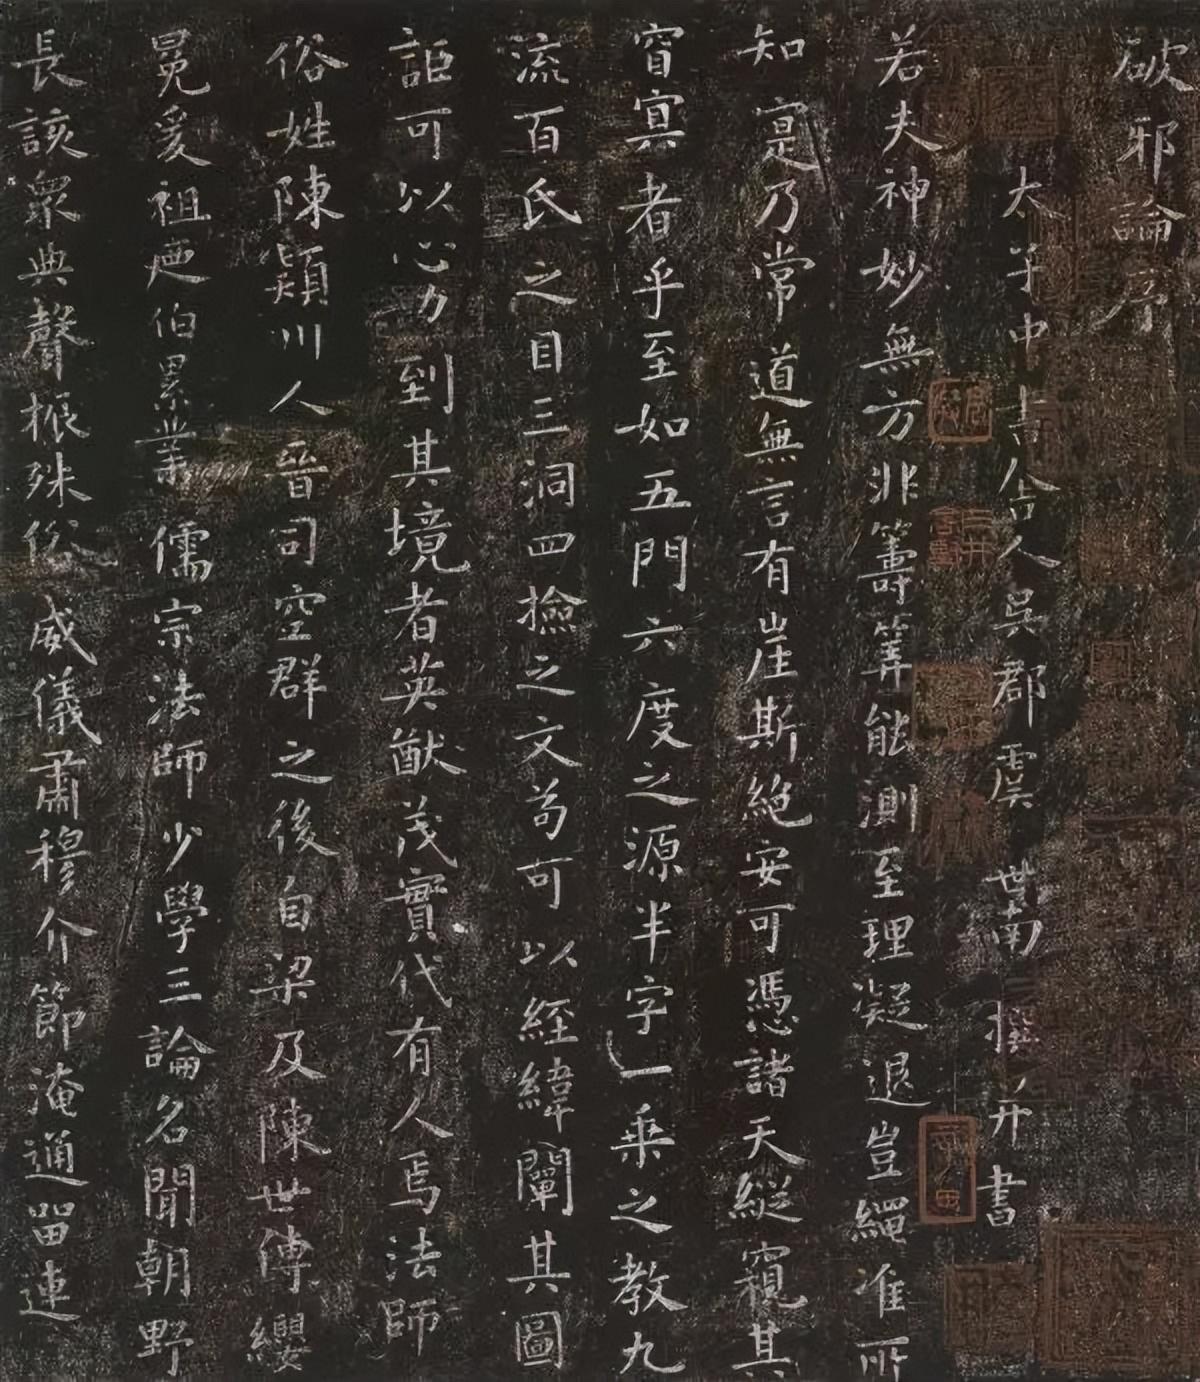 破邪論序
太子中書舍人吳郡虞世南撰并書
若夫神妙無方非籌筭能測至理凝退豈繩准所
知寔乃常道無言有崖斯絕安可憑諸天縱窺其
窅冥者乎至如五門六度之源半字一乘之教九
流百氏之目三洞四撿之文苟可以經緯闡其圖
詎可以心力到其境者英猷茂實代有人焉法師
俗姓陳潁川人晉司空群之後自梁及陳世傳纓
冕爰祖迺伯累業儒宗法師少學三論名聞朝野
長該眾典聲振殊俗威儀肅穆介節淹通留連